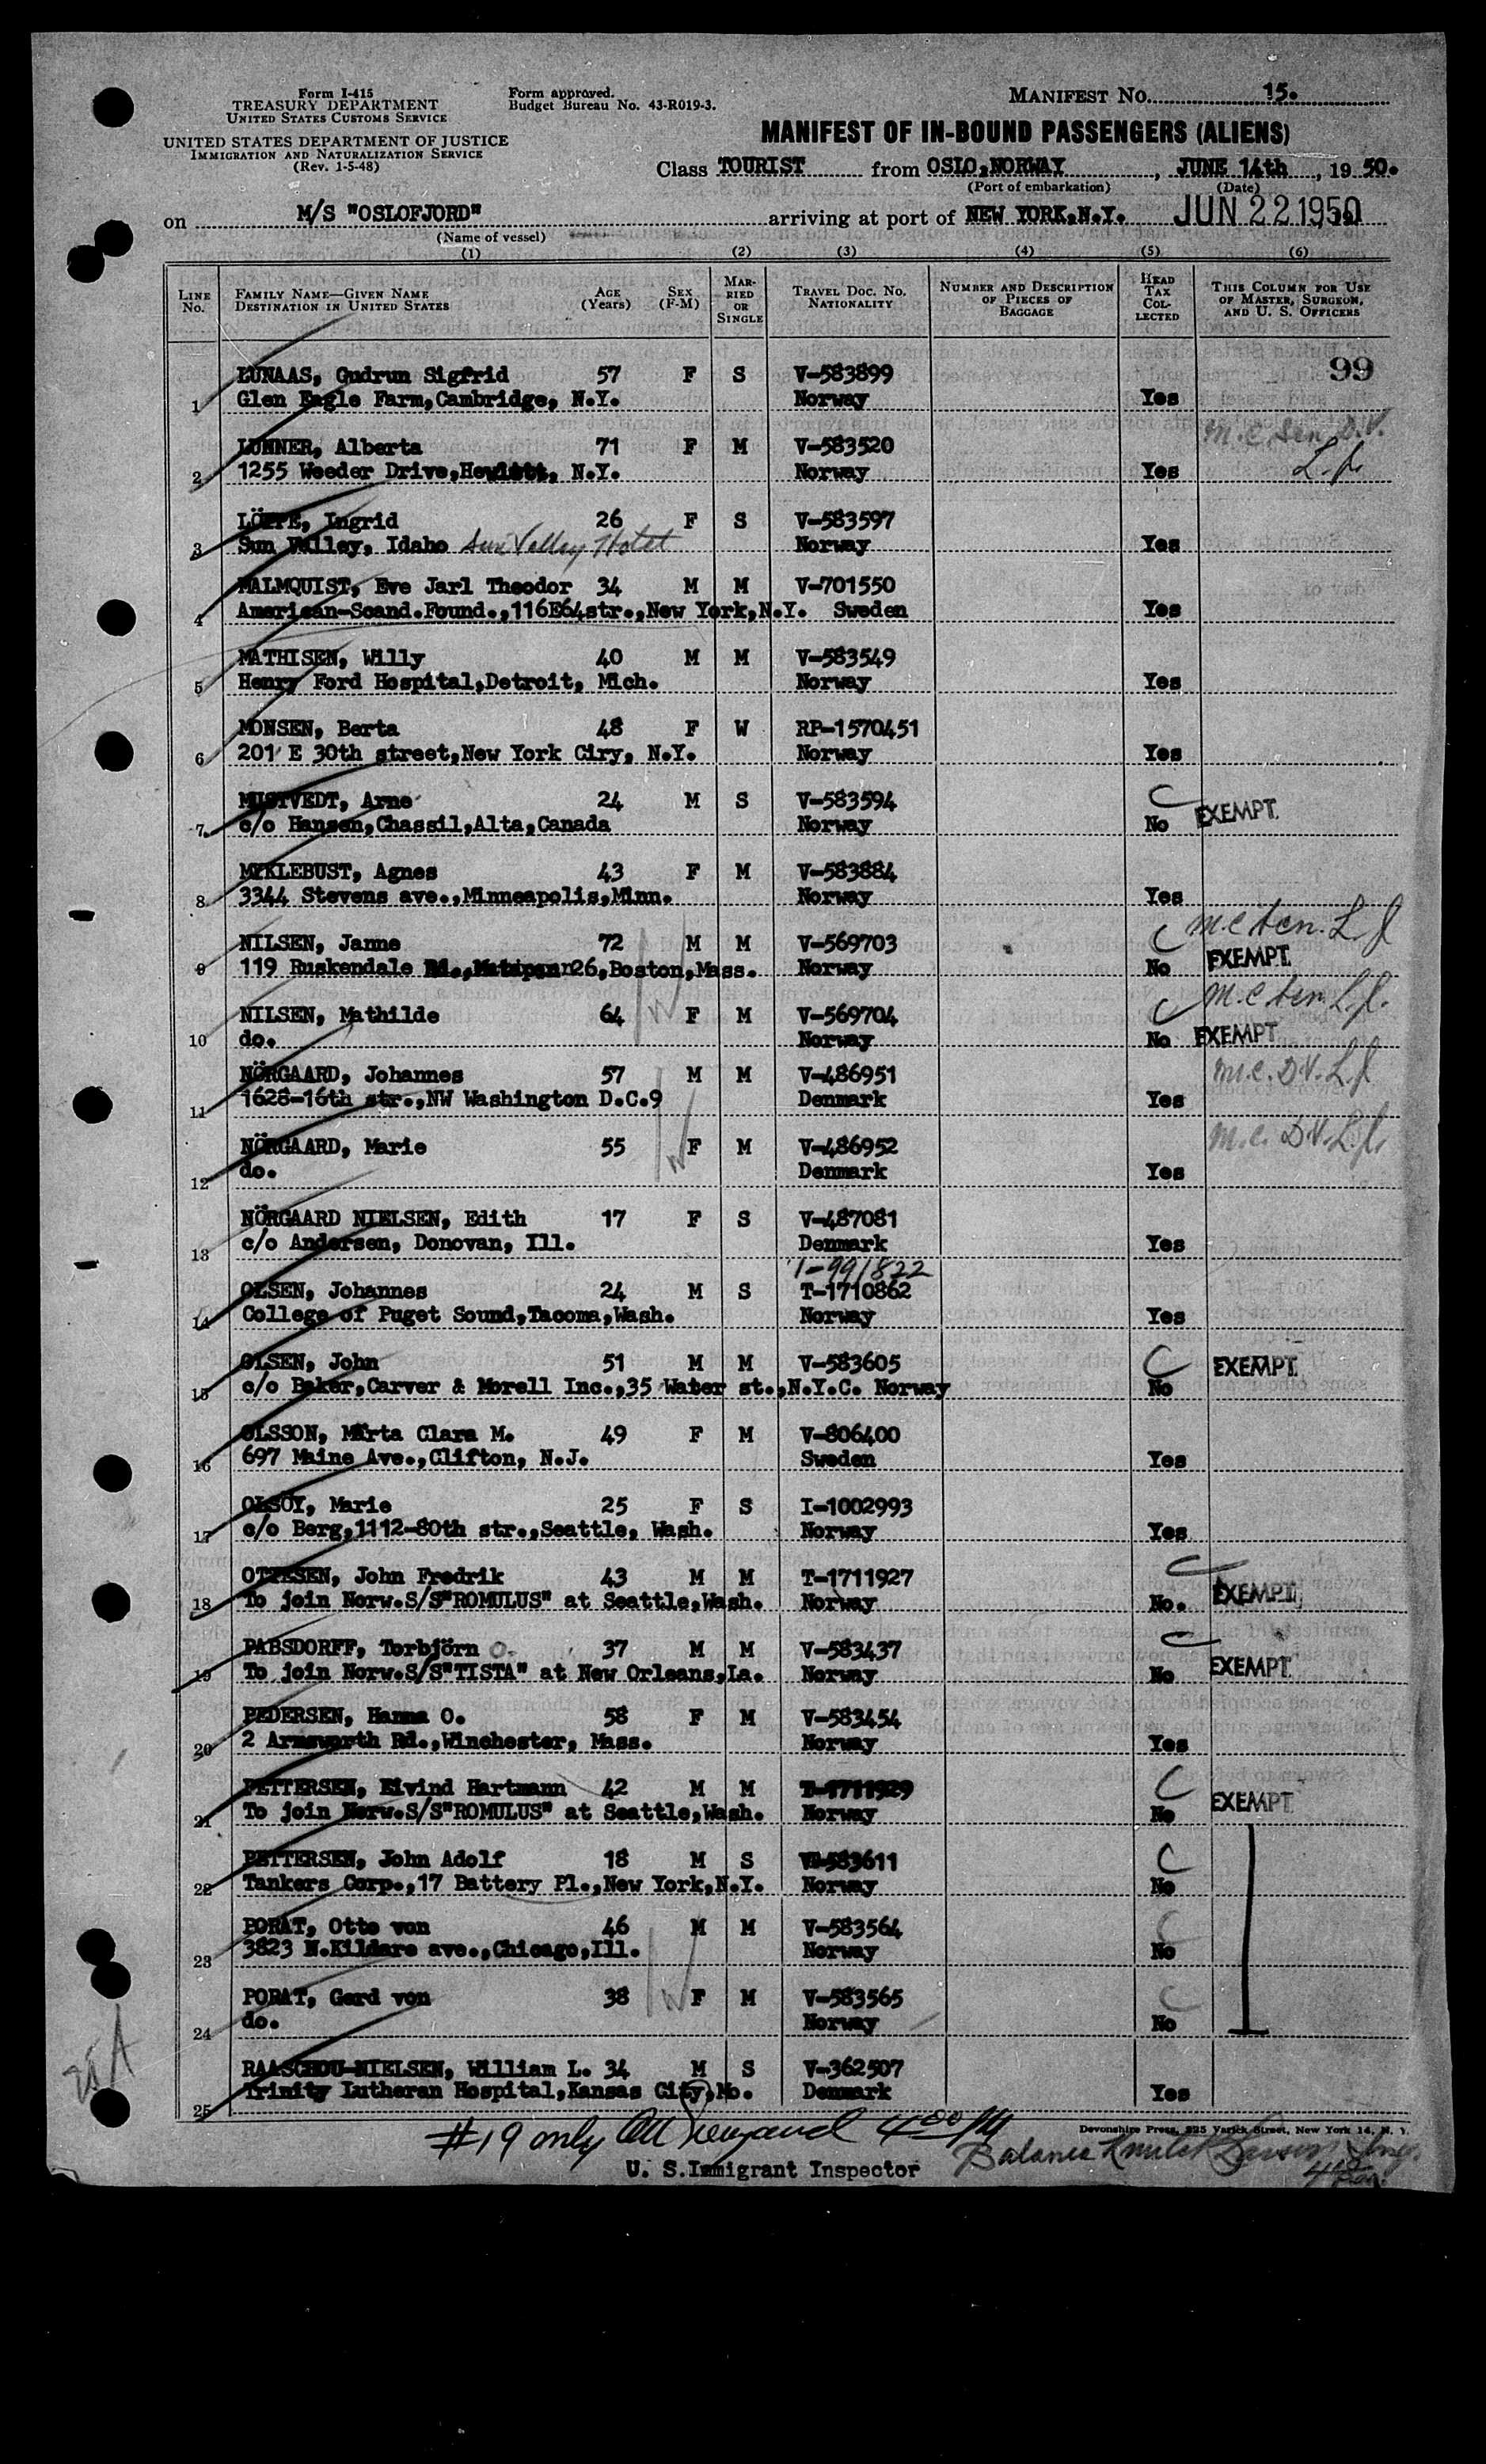 Form I-415
TREASURY DEPARTMENT
UNITED STATES CUSTOMS SERVICE
UNITED STATES DEPARTMENT OF JUSTICE
IMMIGRATION AND NATURALIZATION SERVICE
(Rev. 1-5-48)
Form approved.
Budget Bureau No. 43-R019-3.
MANIFEST NO. 15.
MANIFEST OF IN-BOUND PASSENGERS (ALIENS)
Class TOURIST from OSLO,NORWAY, JUNE 14th, 1950.
(Port of embarkation) (Date)
on M/S "OSLOFJORD" arriving at port of NEW YORK.N.Y. JUN 22 1950
(Name of vessel)
(1) (2) (3) (4) (5) (6)
LINE NO. FAMILY NAME—GIVEN NAME DESTINATION IN UNITED STATES AGE (Years) SEX (F-M) MARRIED OR SINGLE TRAVEL DOC. NO. NATIONALITY NUMBER AND DESCRIPTION OF PIECES OF BAGGAGE HEAD TAX COLLECTED THIS COLUMN FOR USE OF MASTER, SURGEON, AND U. S. OFFICERS
99
LUNAAS, Gudrun Sigfrid 57 F S V-583899
1 Glen Eagle Farm,Cambridge, N.Y. Norway Yes
LUNNER, Alberta 71 F M V-583520 M.C. Sen. D.V.
2 1255 Weeder Drive,Hewlett, N.Y. Norway Yes L.J.
LÖPPE, Ingrid 26 F S V-583597
3 Sun Valley, Idaho Sun Valley Hotel Norway Yes
MALMQUIST, Eve Jarl Theodor 34 M M V-701550
4 American-Scand.Found.,116E64str.,New York,N.Y. Sweden Yes
MATHISEN, Willy 40 M M V-583549
5 Henry Ford Hospital,Detroit, Mich. Norway Yes
MONSEN, Berta 48 F W RP-1570451
6 201 E 30th street,New York Ciry, N.Y. Norway Yes
MUSTVEDT, Arne 24 M S V-583594 C
7 c/o Hansen,Chassil,Alta,Canada Norway No EXEMPT.
MYKLEBUST, Agnes 43 F M V-583884
8 3344 Stevens ave.,Minneapolis,Minn. Norway Yes
NILSEN, Janne 72 M M V-569703 C M.C Sen. L.J
9 119 Ruskendale Rd., 26,Boston,Mass. Norway No EXEMPT.
NILSEN, Mathilde 64 F M V-569704 C M.C Sen. L.J.
10 do. Norway No EXEMPT
NÖRGAARD, Johannes 57 M M V-486951 M.C. D.V. L.J
11 1628-16th str.,NW Washington D.C.9 Denmark Yes
NÖRGAARD, Marie 55 F M V-486952 M.C. D.V. L.J.
12 do. Denmark Yes
NÖRGAARD NIELSEN, Edith 17 F S V-487081
13 c/o Andersen, Donovan, Ill. Denmark Yes
I-991822
OLSEN, Johannes 24 M S T-1710862
14 College of Puget Sound,Tacoma,Wash. Norway Yes
OLSEN, John 51 M M V-583605 C EXEMPT.
15 c/o Baker,Carver & Morell Inc.,35 Water st.,N.Y.C. Norway No
OLSSON, Märta Clara M. 49 F M V-806400
16 697 Maine Ave.,Clifton, N.J. Sweden Yes
OLSÖY, Marie 25 F S I-1002993
17 c/o Berg,1112-80th str.,Seattle, Wash. Norway Yes
OTTESEN, John Fredrik 43 M M T-1711927 C
18 To join Norw.S/S"ROMULUS" at Seattle,Wash. Norway No. EXEMPT
PABSDORFF, Torbjörn O. 37 M M V-583437 C
19 To join Norw.S/S"TISTA" at New Orleans,La. Norway No EXEMPT.
PEDERSEN, Hanna O. 58 F M V-583454
20 2 Armsworth Rd.,Winchester, Mass. Norway Yes
PETTERSEN, Eivind Hartmann 42 M M T-1711929 C
21 To join Norw.S/S"ROMULUS" at Seattle,Wash. Norway No EXEMPT
PETTERSEN, John Adolf 18 M S V-583611 C
22 Tankers Corp.,17 Battery Pl.,New York,N.Y. Norway No
PORAT, Otto von 46 M M V-583564 C
23 3823 N.Kildare ave.,Chicago,Ill. Norway No
PORAT, Gerd von 38 F M V-583565 C
24 do. Norway No
RAASCHOU-NIELSEN, William L. 34 M S V-362507
25 Trinity Lutheran Hospital,Kansas City,Mo. Denmark Yes
25A
#19 only
Devonshire Press, 225 Varick Street, New York 14, N. Y.
Balance
U. S.Immigrant Inspector